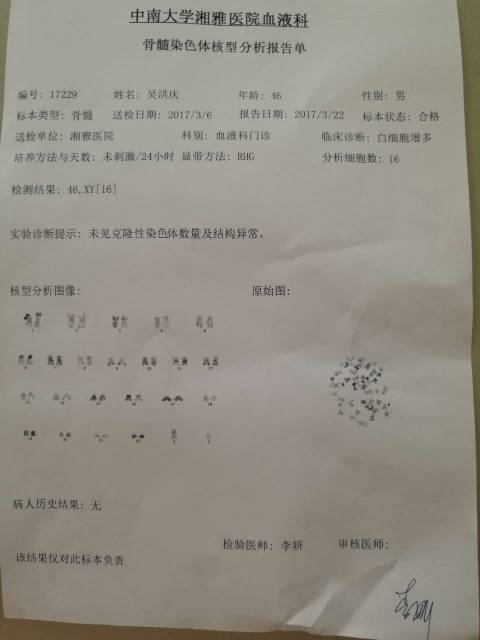 中南大学湘雅医院血液科
骨髓染色体核型分析报告单
编号: 17229 姓名: 吴洪庆 年龄: 46 性别: 男
标本类型: 骨髓 送检日期: 2017/3/6 报告日期: 2017/3/22 标本状态: 合格
送检单位: 湘雅医院 科别: 血液科门诊 临床诊断: 白细胞增多
培养方法与天数: 未刺激/24小时 显带方法: RHG 分析细胞数: 16
检测结果: 46,XY[16]
实验诊断提示: 未见克隆性染色体数量及结构异常。
核型分析图像: 原始图:
病人历史结果: 无
检验医师: 李妍 审核医师:
该结果仅对此标本负责